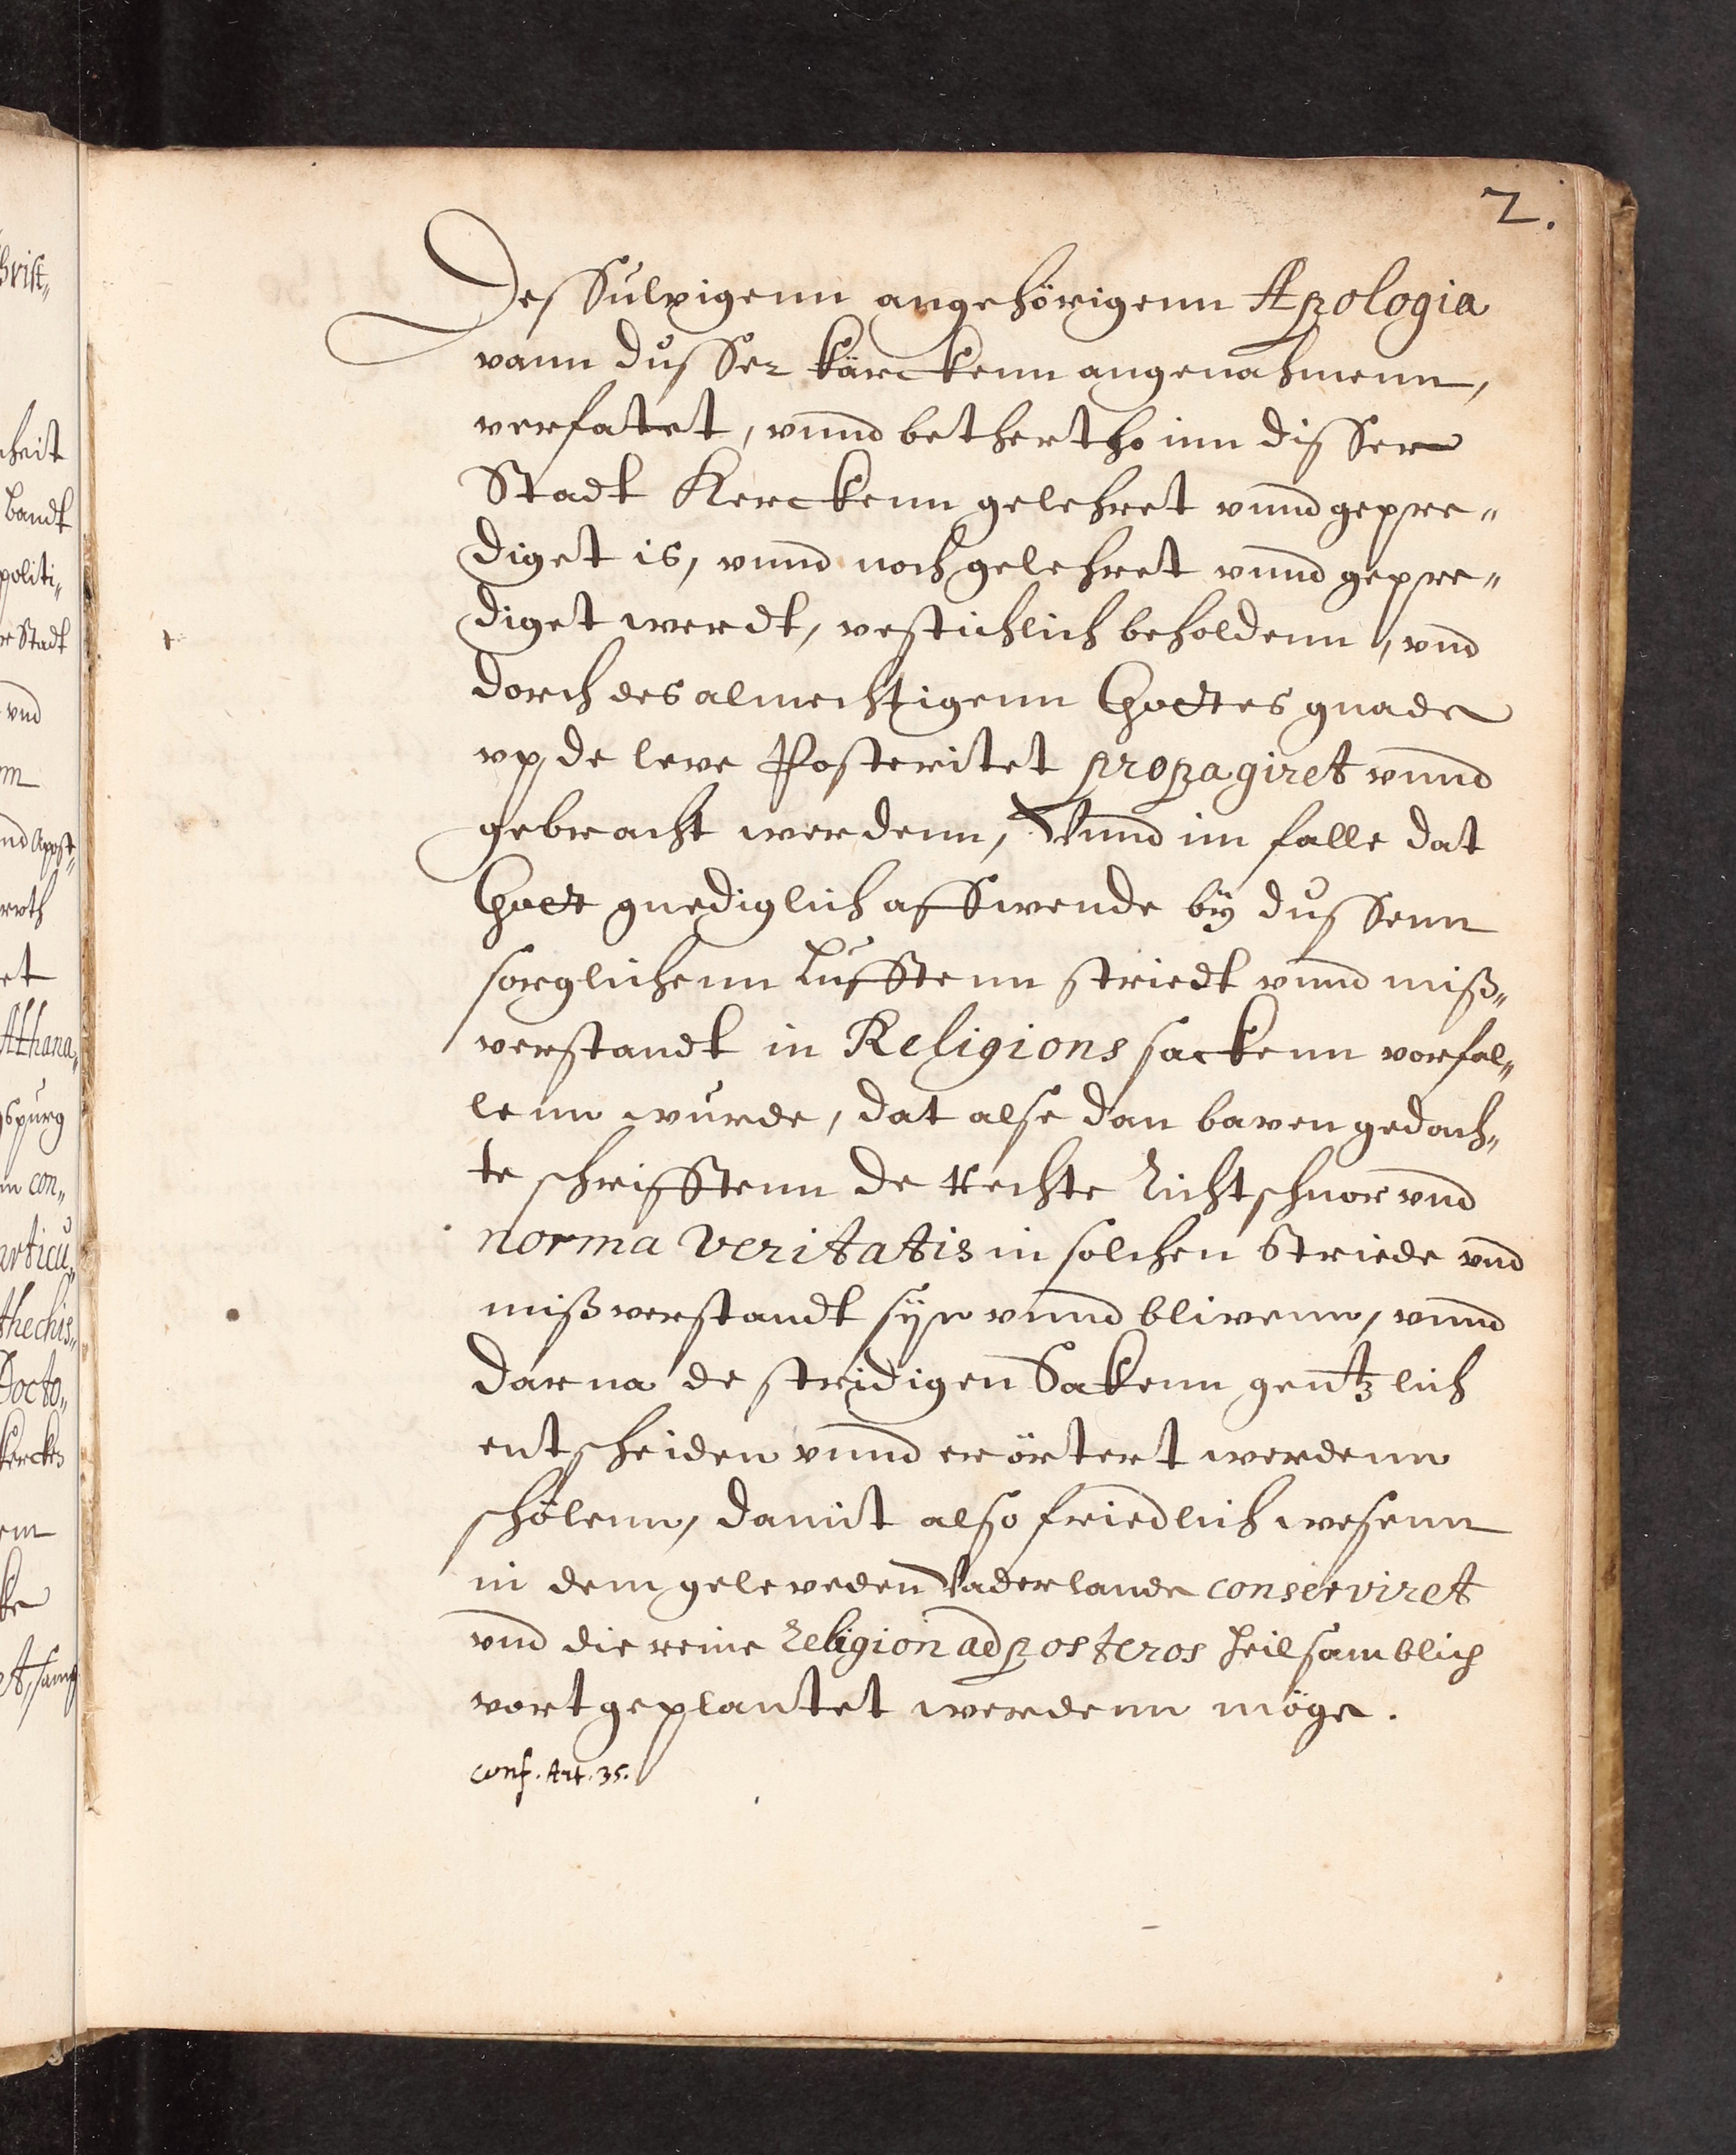 2.
Dessulvigenn angehörigenn Apologia
vann dusser kärckenn angenahmenn,
verfatet, vnnd bethertho inn disser
Stadt Kerckenn gelehret vnnd gepre„
diget is, vnnd noch gelehret vnnd gepre„
diget werdt, vestichlich beholdenn, vnd
dorch des almechtigenn Gottes gnade
vp de leve Posteritet propagiret vnnd
gebracht werdenn, Vnnd im falle dat
Gott gnediglich affwende by dussenn
sorglichenn Lufftenn striedt vnnd miß„
verstandt in Religions sackenn vorfal„
lenn wurde, dat alse dan baven gedach„
te schrifftenn de rechte Richtschnor vnd
norma veritatis in solchen Striede vnd
mißverstandt syn vnnd blivenn, vnnd
darna de stridigen Sakenn gentzlich
entscheiden vnnd erörtert werdenn
schölenn, damit also friedlich wesenn
in dem geleveden Vaderlande conserviret
vnd die reine Religion ad posteros heilsamblich
vortgeplantet werdenn möge.
conf. Art. 35.
hrist„
heit
bandt
politi„
re Stadt
vnd
nd Apost„
et
Athana„
spurg
m con„
articu„
thechis„
Docto„
kercke
et, samp